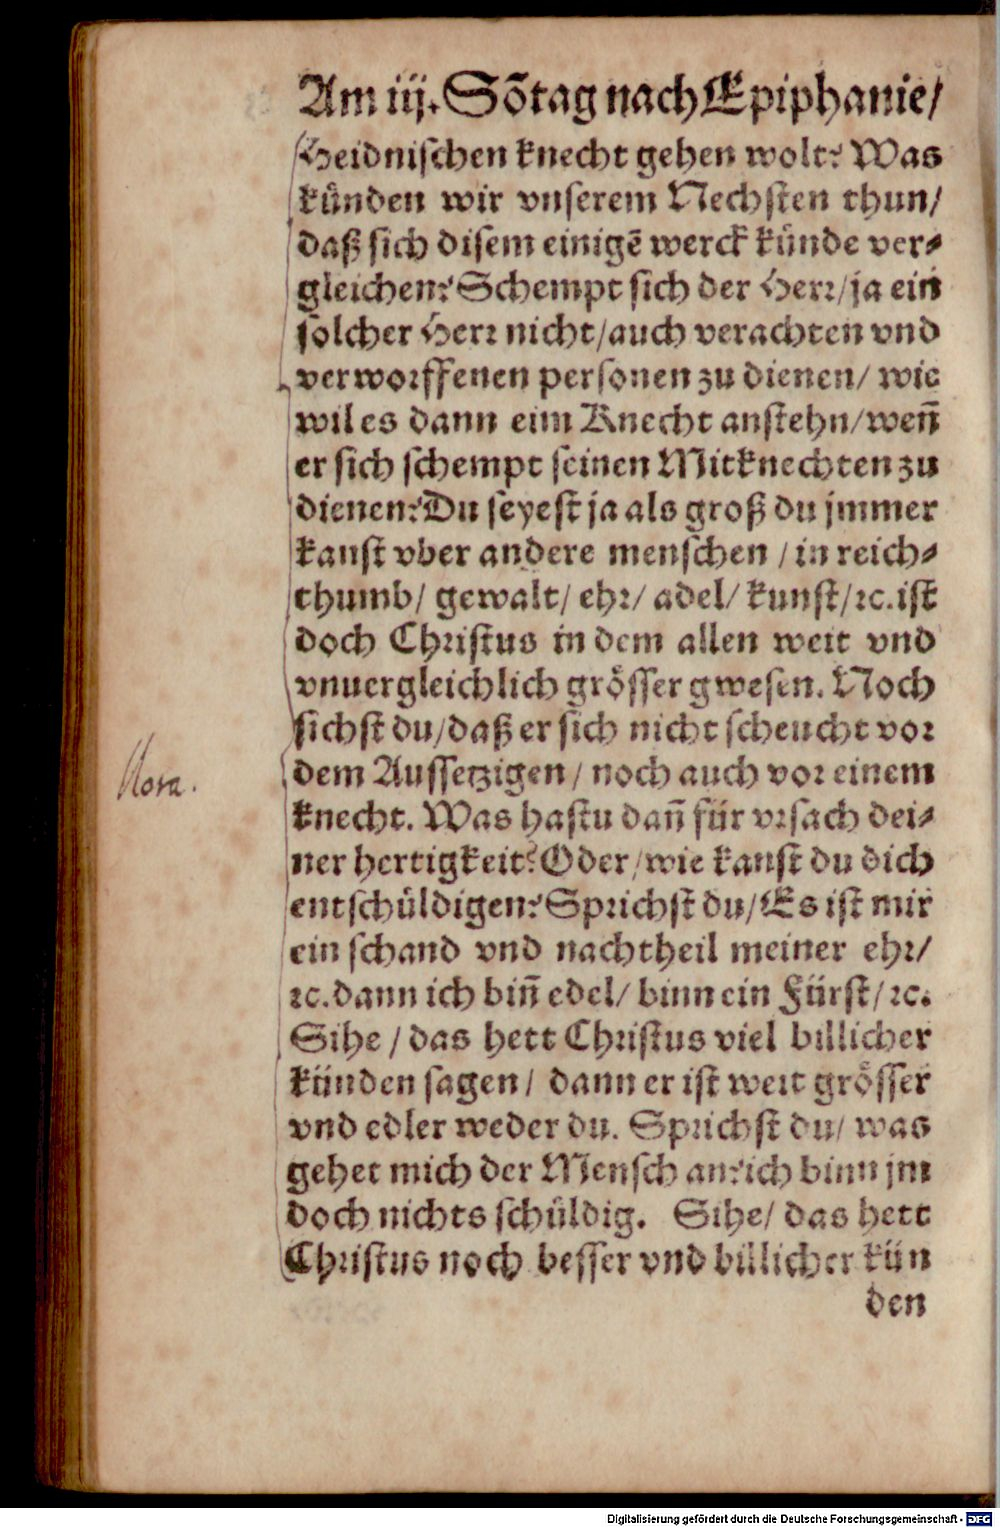 Am iij. Sõtag nach Epiphanie/
Heidnischen knecht gehen wolt? Was
künden wir vnserem Nechsten thun/
daß sich disem einigẽ werck künde ver-
gleichen? Schempt sich der Herr/ ja ein
solcher Herr nicht/ auch verachten vnd
verworffenen personen zu dienen/ wie
wil es dann eim Knecht anstehn/ weñ
er sich schempt seinen Mitknechten zu
dienen? Du seyest ja als groß du jmmer
kanst vber andere menschen / in reich-
thumb/ gewalt/ ehr/ adel/ kunst/ ꝛc. ist
doch Christus in dem allen weit vnd
vnuergleichlich grösser gwesen. Noch
sichst du/ daß er sich nicht scheucht vor
dem Aussetzigen / noch auch vor einem
Nota.
knecht. Was hastu dañ für vrsach dei-
ner hertigkeit? Oder/ wie kanst du dich
entschüldigen? Sprichst du/ Es ist mir
ein schand vnd nachtheil meiner ehr/
ꝛc. dann ich biñ edel/ binn ein Fürst/ ꝛc.
Sihe / das hett Christus viel billicher
künden sagen/ dann er ist weit grösser
vnd edler weder du. Sprichst du/ was
gehet mich der Mensch an? ich binn jm
doch nichts schüldig. Sihe/ das hett
Christus noch besser vnd billicher kün
den
Digitalisierung gefördert durch die Deutsche Forschungsgemeinschaft - DFG